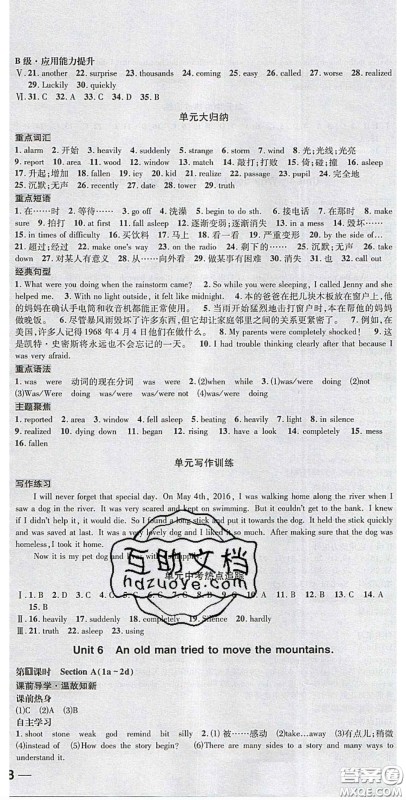 B 级·应用能力提升
Ⅴ. 21. another 22. surprise 23. thousands 24. coming 25. easy 26. called 27. worse 28. realized
29. Luckily 30. quickly
Ⅵ. 31. C 32. C 33. A 34. D 35. B
单元大归纳
重点词汇
1. alarm 2. 开始 3. heavily 4. suddenly 5. strange 6. storm 7. wind 8. 光;光线;光亮
9. report 10. area 11. wood 12. window 13. match 14. 敲(打);打败 15. 倚;碰;撞 16. asleep
17. 升起;增加 18. fallen 19. icy 20. kid 21. realize 22. passage 23. pupil 24. 完全地
25. 沉默;无声 26. recently 27. date 28. tower 29. truth
重点短语
1. 在……时 2. 等待…… 3. go off 4. 洗澡 5. begin to do sth. 6. 接电话 7. 在那时 8. make
9. report 10. at first 11. fall asleep 12. 逐渐变弱;逐渐消失 13. in a mess 14. 毁坏……
15. in times of difficulty 16. 买饮料 17. 马上 18. 看一看 19. 严重变形 20. by the side of
21. 超过;经过 22. make one's way 23. on the radio 24. 剩下的…… 25. 沉默;无声 26. take
27. down 28. 对某人有意义 29. 从……向外看 30. 做某事有困难 31. at 32. call out
经典句型
1. What were you doing when the rainstorm came? 2. So while you were sleeping, I called Jenny and she
helped me. 3. With no light outside, it felt like midnight. 4. 本的爸爸把几块木板放在窗户上,他
的妈妈在确认手电筒和收音机都能正常工作。 5. 当雨开始猛烈地击打窗户时,本正在帮他的妈妈
做晚饭。 6. 尽管暴风雨毁坏了许多东西,但它却让家庭邻里之间的关系更紧密了。 7. 例如,在
美国,许多人记得 1968 年 4 月 4 日他们在做什么。 8. My parents were completely shocked! 9. 这
是凯特·史密斯将永远不会忘记的一天。 10. I had trouble thinking clearly after that because I
was very afraid.
重点语法
1. was were 动词的现在分词 was were 2. (2)when while 3. (1)was/were doing not
(3)Was/Were doing (4)was/were (5)was/were doing
主题聚焦
1. reported 2. area 3. storm 4. asleep 5. beating 6. heavily 7. light 8. in silence
9. realized 10. dying down 11. began 12. rising 13. have a look 14. completely 15. mess
16. fallen
单元写作训练
写作练习
I will never forget that special day. On May 4th, 2016, I was walking home along the river when I
saw a dog in the river. It was very scared and kept on swimming. But it was so weak and tired that it
kept sinking. I felt I must save it. So I found a long stick and put it towards it. It held the stick quickly
and was saved at last. It was too weak to move and looked sad. Soon after I learned that the dog was
homeless, I took it home.
Now it is my pet dog and I live with it happily.
单元中考热点追踪
Ⅰ. 1. B 2. B 3. C 4. C 5. D 6. B 7. D 8. A 9. C 10. A 11. D 12. C 13. C 14. A
15. B
Ⅱ. 16. suddenly 17. realize 18. completely 19. silence 20. heavily
Ⅲ. 21. truth 22. asleep 23. against 24. icy 25. kids
Unit 6 An old man tried to move the mountains.
第1课时 Section A(1a－2d)
课前导学·温故知新
课前热身
(1)C (2)A (3)B
自主学习
1. shoot stone weak god remind bit silly 2. (1)被……感动 (2)take…away (3)有点儿;稍微
(4)instead of (5)How does the story begin? (6)There are many sides to a story and many ways to
understand it.
8 —
互助文档
hdzuoye.com
答案圈
MXQE.COM